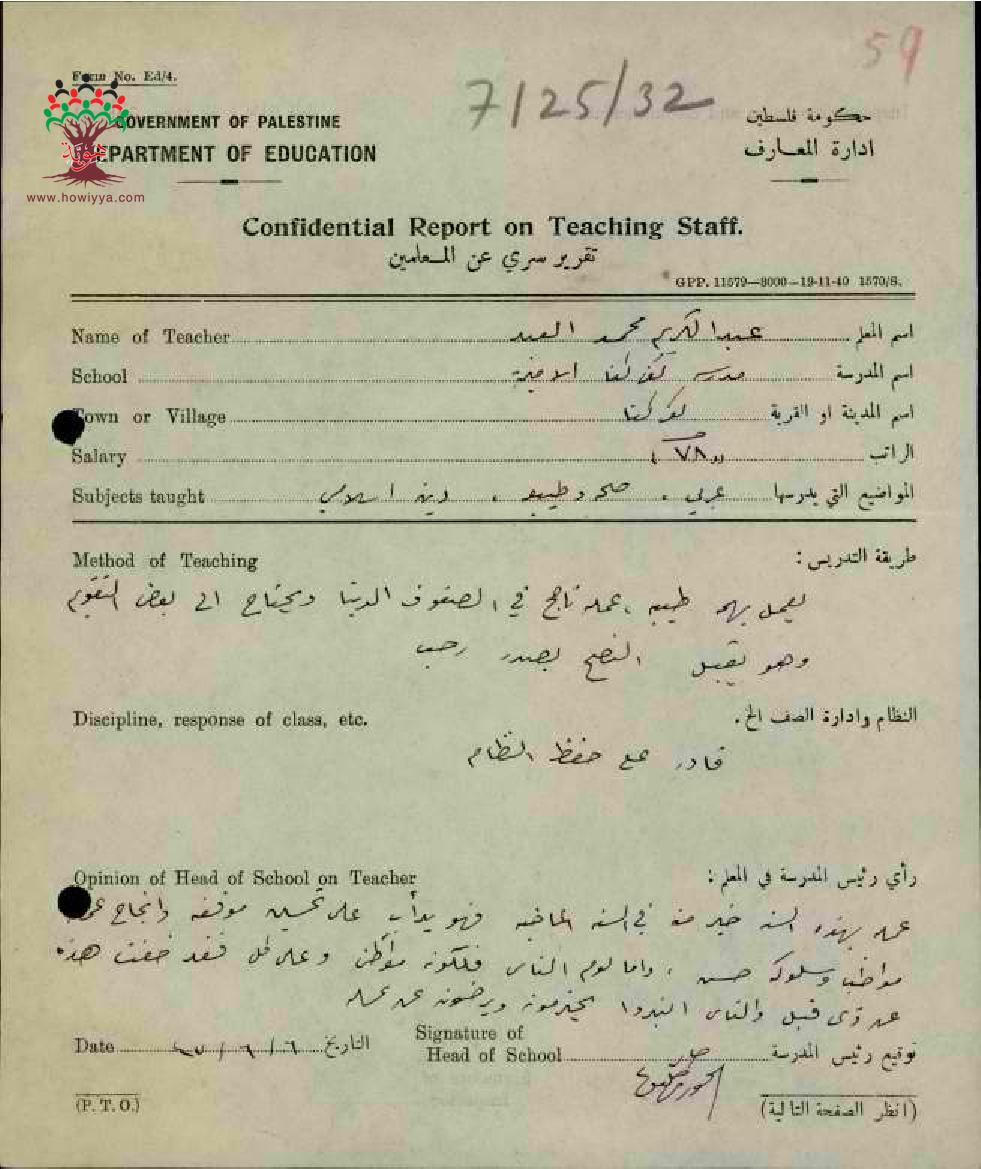 59
Form No. Ed/4.
7/25/32
GOVERNMENT OF PALESTINE
حكومة فلسطين
DEPARTMENT OF EDUCATION
ادارة المعارف
هوية
www.howiyya.com
Confidential Report on Teaching Staff.
تقرير سري عن المعلمين
GPP. 11579—8000—19-11-40 1570/S.
Name of Teacher عبد الكريم محمد العبد اسم المعلم
School مدرسة كفر كنا الاميرية اسم المدرسة
Town or Village كفر كنا اسم المدينة او القرية
Salary الراتب
Subjects taught عربي ، صحة وطبيعة ، دين اسلامي المواضيع التي يدرسها
Method of Teaching طريقة التدريس :
يعمل بهمة طيبة ، عمله ناجح في الصفوف الدنيا ويحتاج الى بعض التقويم
وهو يقبل النصح بصدر رحب
Discipline, response of class, etc. النظام وادارة الصف الخ.
قادر على حفظ النظام
Opinion of Head of School on Teacher رأي رئيس المدرسة في المعلم :
عمله بهذه السنة خير منه في السنة الماضية فهو يدأب على تحسين موقفه وانجاح عمله
مواظب وسلوكه حسن ، واما لوم الناس فلكونه مواطن وعلى كل فقد خفت هذه
عن ذي قبل والناس يحترمونه ويرضون عن عمله
Date التاريخ
Signature of
Head of School توقيع رئيس المدرسة
(P. T. O.) (انظر الصفحة التالية)